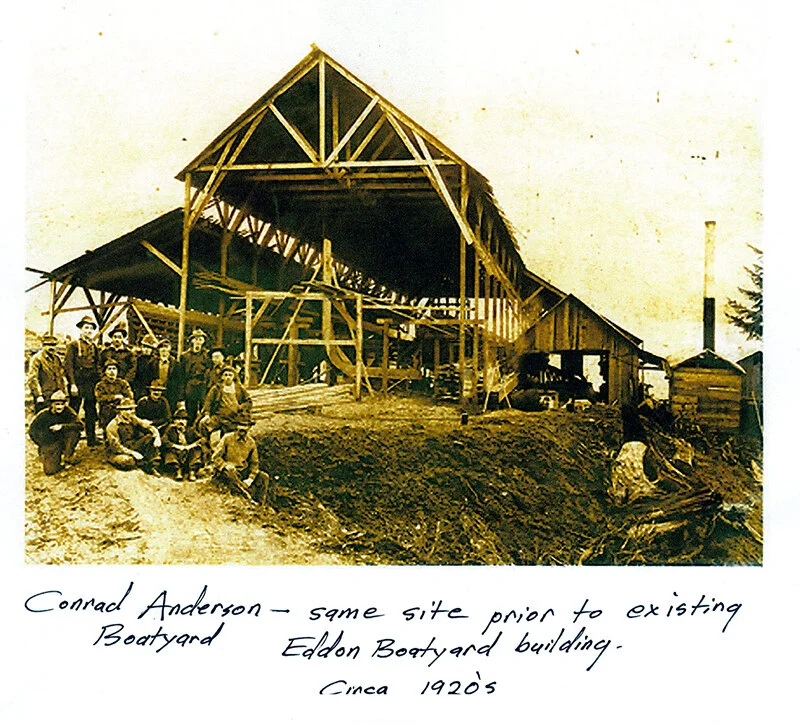 Conrad Anderson – same site prior to existing
Boatyard Eddon Boatyard building.
Circa 1920's